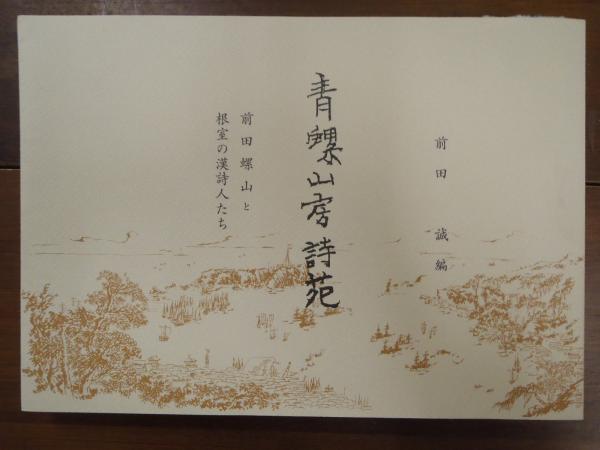 前田 誠 編
青螺山房詩苑
前田螺山と
根室の漢詩人たち